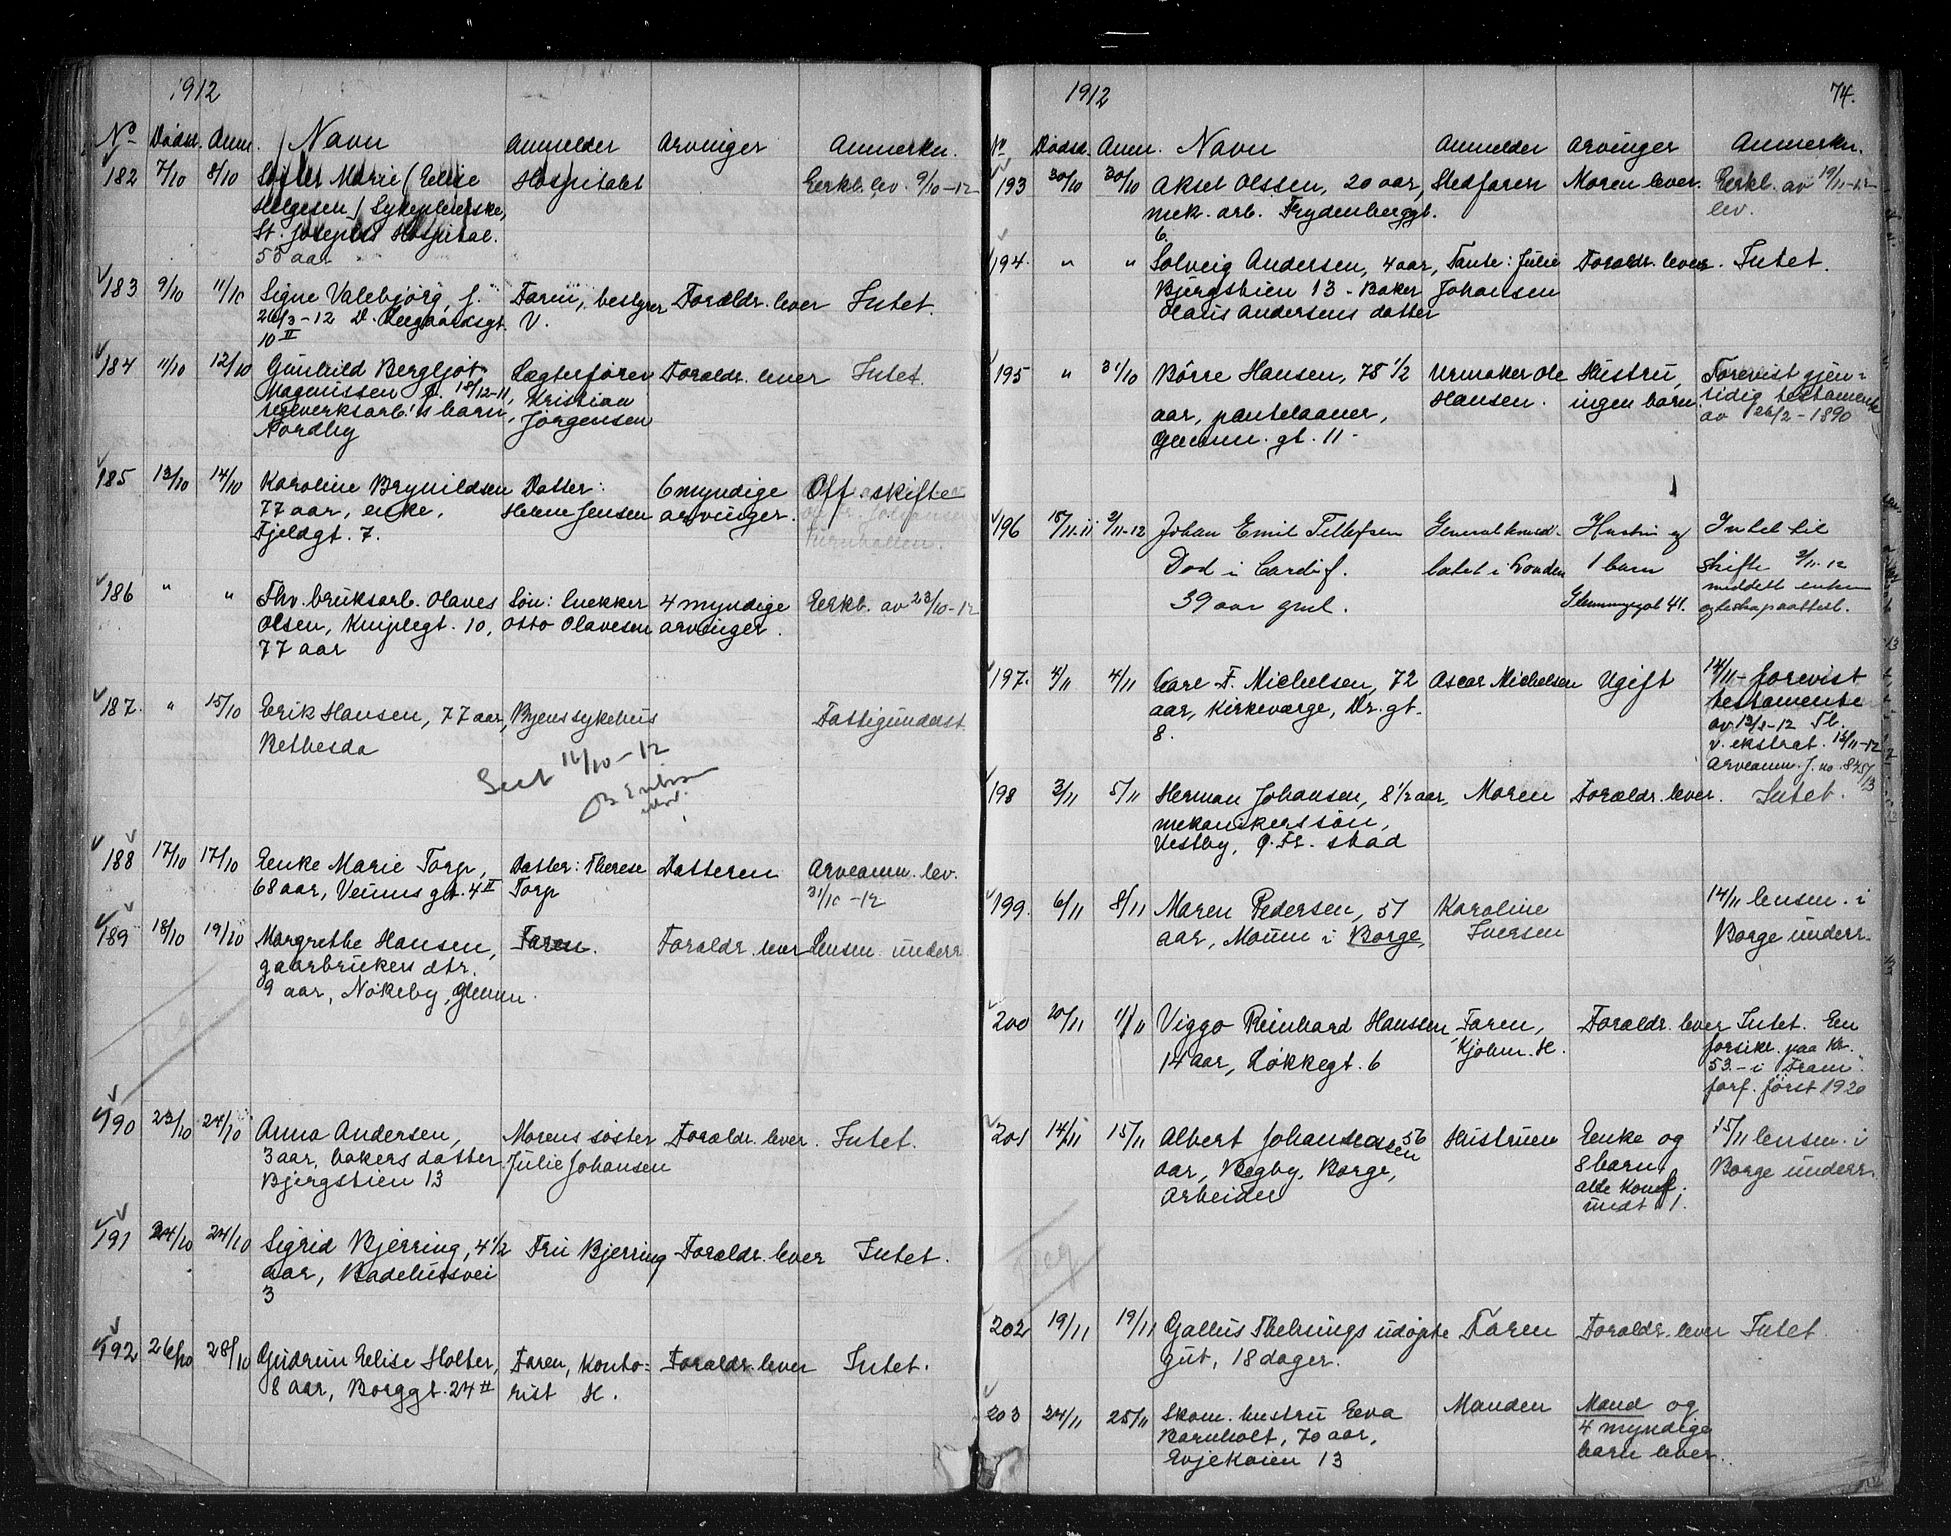 1912
No Dødsd. Anm. Navn Anmelder Arvinger Anmerkn.
182 7/10 8/10 Søster Marie (Elise Hospitalet Erkl. lev. 9/10-12
Helgesen) Sykepleierske,
St. Josephs Hospital.
55 aar
183 9/10 11/10 Signe Valebjørg, f. Faren, bestyrer Forældr. lever Intet.
26/3-12 V.
10 II
184 11/10 12/10 Gunhild Bergljot Lægterfører Forældr. lever Intet.
Magnussen f. 18/12-11, Kristian
teglverksarb.'s barn, Jørgensen
Nordby
185 13/10 14/10 Karoline Brynildsen Datter: 6 myndige Off. skifte
77 aar, enke, Helene Jensen arvinger.
Fjeldgt. 7.
186 " " Fhv. bruksarb. Olaves Søn: 4 myndige Erkl. av 23/10-12
Olsen, Kniplegt. 10, Otto Olavesen arvinger.
77 aar
187. " 15/10 Erik Hansen, 77 aar, Byens sykehus Fattigunderst.
Bethesda
16/10-12
188 17/10 17/10 Enke Marie Torp, Datter: Therese Datteren Arveanm. lev.
68 aar, Veumsgt. 4 II Torp 31/10-12
189 18/10 19/10 Margrethe Hansen, Faren. Forældr. lever Lensm. underr.
gaarbrukers dtr.
9 aar, Nøkeby, Glemm.
190 23/10 24/10 Anna Andersen, Morens søster Forældr. lever. Intet.
3 aar, bakers datter. Julie Johansen
Bjergstien 13
191 24/10 24/10 Sigrid Bjerring, 4 1/2 Fru Bjerring Forældr. lever Intet.
aar, Badehusvei
3
192 26/10 28/10 Gudrun Elise Holter, Faren, konto- Forældr. lever Intet.
8 aar, Borggt. 24 II rist H.
1912 74.
No Dødsd. Anm. Navn Anmelder Arvinger Anmerkn.
193 30/10 30/10 Aksel Olssen, 20 aar, Stedfaren Moren lever. Erkl. av 19/11-12
mek. arb. Frydenberggt. lev.
6.
194 " " Solveig Andersen, 4 aar, Tante: Julie Forældr. lever. Intet.
Bjergstien 13 - Baker Johansen
Olaus Andersens datter
195 " 31/10 Børre Hansen, 75 1/2 Urmaker Ole Hustru, Forevist gjen-
aar, pantelaaner, Hansen. ingen barn. sidig testamente
Glemm. gt. 11 - av 26/2-1890
196 15/11-11 2/11-12 Johan Emil Tellefsen Generalkonsu- Hustru og Intet til
Død i Cardif. latet i London 1 barn skifte 2/11-12
39 aar gml. Glemmegat 41. meddelt enken
197. 4/11 4/11 Carl F. Michelsen, 72 Oscar Michelsen Ugift 14/11- forevist
aar, kirkeværge, Dr. gt. testamente
8. av 12/8-12
v. ekstrat. 15/11-12
Arveanm. J. no 845/13
198 3/11 5/11 Herman Johansen, 8 1/2 aar, Moren Forældr. lever. Intet.
mekanikerssøn,
Vestby, g. Fr. stad
199. 6/11 8/11 Maren Pedersen, 51 Karoline 14/11 lensm. i
aar, Moum i Borge, Iversen Borge underr.
200 20/11 11/11 Viggo Reinhard Hansen Faren, Forældr. lever Intet. En
14 aar, Løkkegt. 6 Kjøbm. H. forsikr. paa Kr.
53.- i Fram
forf. først 1920
201 14/11 15/11 Albert Johannessen 56 Hustruen Enke og 15/11 lensm. i
aar, Begby, Borge, 8 barn, Borge underr.
Arbeider alle konf.
undt 1.
202 19/11 19/11 Gallus Thelnings udøpte Faren Forældr. lever Intet.
gut, 18 dager.
203 24/11 25/11 Skom. hustru Eva Manden Mand og
Barnholt, 70 aar, 4 myndige
Evjekaien 13 barn lever.